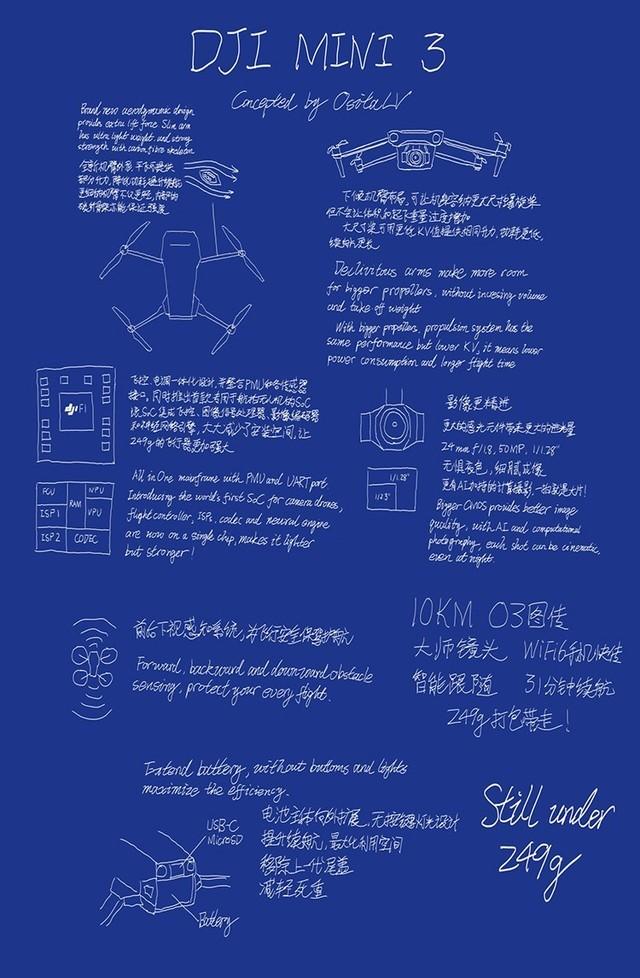 DJI MINI 3
Concepted by OsitaLV
Brand new aerodynamic design
provides extra life force Slim arm
has ultra light weight and strong
strength with carbon fibre skeleton
下倾机臂布局,可让机臂容纳更大尺寸螺旋桨
但不会让体积和起飞重量过度增加
大尺寸桨可用更低KV值提供相同升力,功耗更低,
续航更长
Declivitous arms make more room
for bigger propellers, without invesing volume
and take off weight
With bigger propellers, propulsion system has the
same performance but lower KV, it means lower
power consumption and longer flight time
dji F1
飞控、电调一体化设计,并整合PMU和各传感器
接口,同时推出首款专用于航拍无人机的SoC
该SoC集成飞控、图像信号处理器、影像编码器
和神经网络引擎,大大减小了安装空间,让
249g的飞行器更加强大
FCU
RAM
NPU
ISP1
VPU
ISP2
CODEC
All in One mainframe with PMU and UART port
Introducing the world's first SoC for camera drones,
flight controller, ISPs, codec and neural engine
are now on a single chip, makes it lighter
but stronger!
影像更精进
更大的感光元件带来更大的进光量
24mm f/1.8, 50MP, 1/1.28"
无惧夜色,细腻成像
更有AI加持的计算摄影,一拍就是大片!
1/1.28"
1/2.3"
Bigger CMOS provides better image
quality, with AI and computational
photography, each shot can be cinematic,
even at night.
前后下视感知系统,为飞行安全保驾护航
Forward, backward and downward obstacle
sensing, protect your every flight.
10KM O3图传
大师镜头 WiFi6手机快传
智能跟随 31分钟续航
249g打包带走!
Extend battery, without buttoms and lights
maximize the efficiency.
USB-C
MicroSD
Battery
电池主体向外扩展,无按键灯光设计
提升续航,最大化利用空间
移除上一代尾盖
减轻死重
Still under
249g